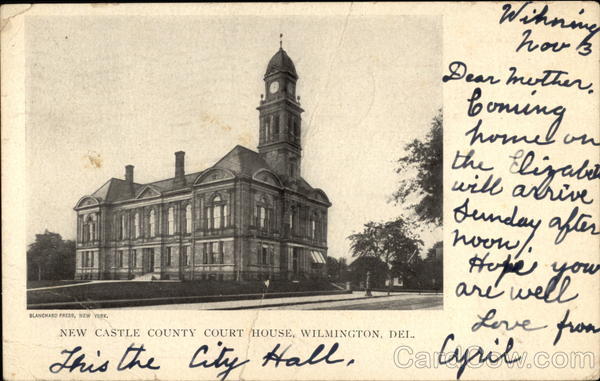 Wilmining
Nov 3
Dear Mother,
Coming
home on
the Elizabeth
will arrive
Sunday after
noon,
Hope you
are well
Love from
Cyril
BLANCHARD PRESS, NEW YORK.
NEW CASTLE COUNTY COURT HOUSE, WILMINGTON, DEL.
This the City Hall.
CardCow.com